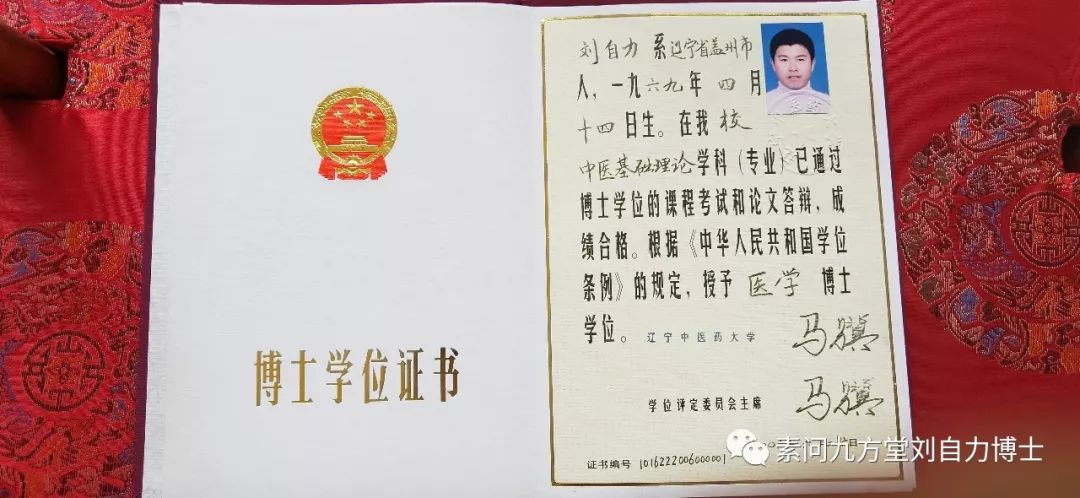 博士学位证书
刘自力 系辽宁省盖州市
人，一九六九年 四 月
十四日生。在我 校
中医基础理论学科（专业）已通过
博士学位的课程考试和论文答辩，成
绩合格。根据《中华人民共和国学位
条例》的规定，授予 医学 博士
学位。
辽宁中医药大学 马骥
学位评定委员会主席 马骥
证书编号 1016222006000001
素问九方堂刘自力博士